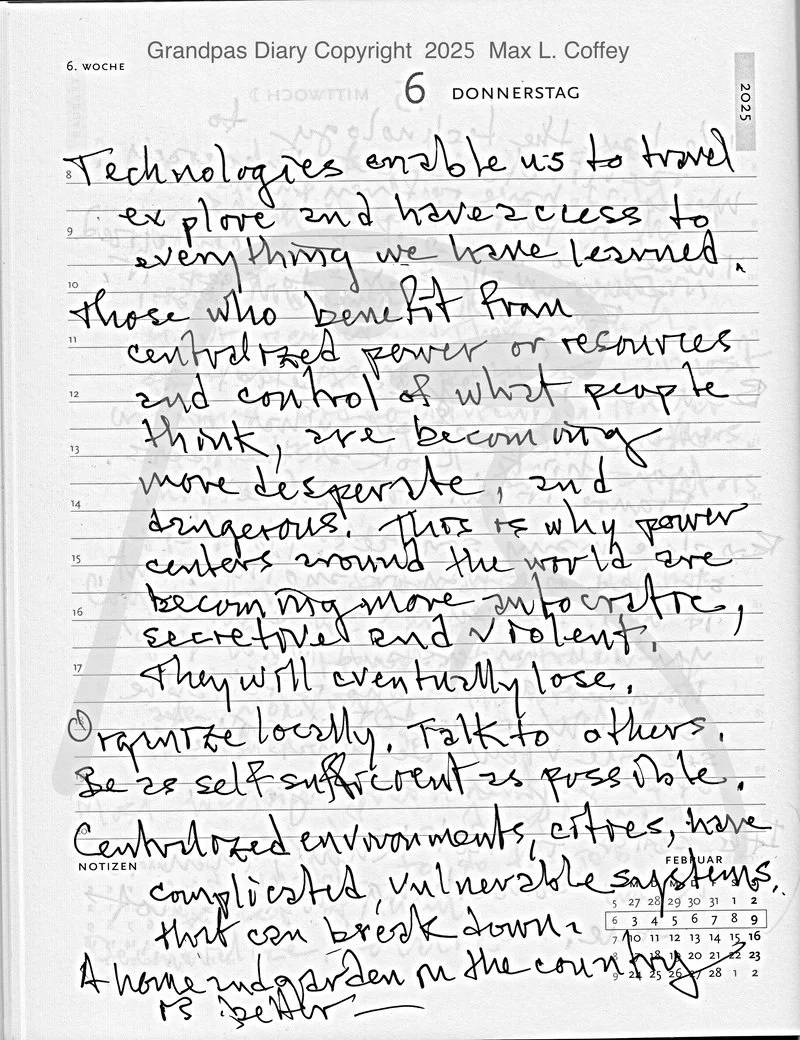 Grandpas Diary Copyright 2025 Max L. Coffey
6. WOCHE
6 DONNERSTAG
2025
8 Technologies enable us to travel
explore and have access to
9 everything we have learned.
10 Those who benefit from
11 centralized power or resources
12 and control of what people
13 think, are becoming
more desperate, and
14 dangerous. This is why power
15 centers around the world are
becoming more autocratic,
16 secretive and violent.
17 They will eventually lose.
Organize locally. Talk to others.
Be as self-sufficient as possible.
Centralized environments, cities, have
NOTIZEN
FEBRUAR
complicated, vulnerable systems,
that can break down.
A home and garden in the country
is better —
M D M D F S S
5 27 28 29 30 31 1 2
6 3 4 5 6 7 8 9
7 10 11 12 13 14 15 16
8 18 19 20 21 22 23
9 24 25 26 27 28 1 2